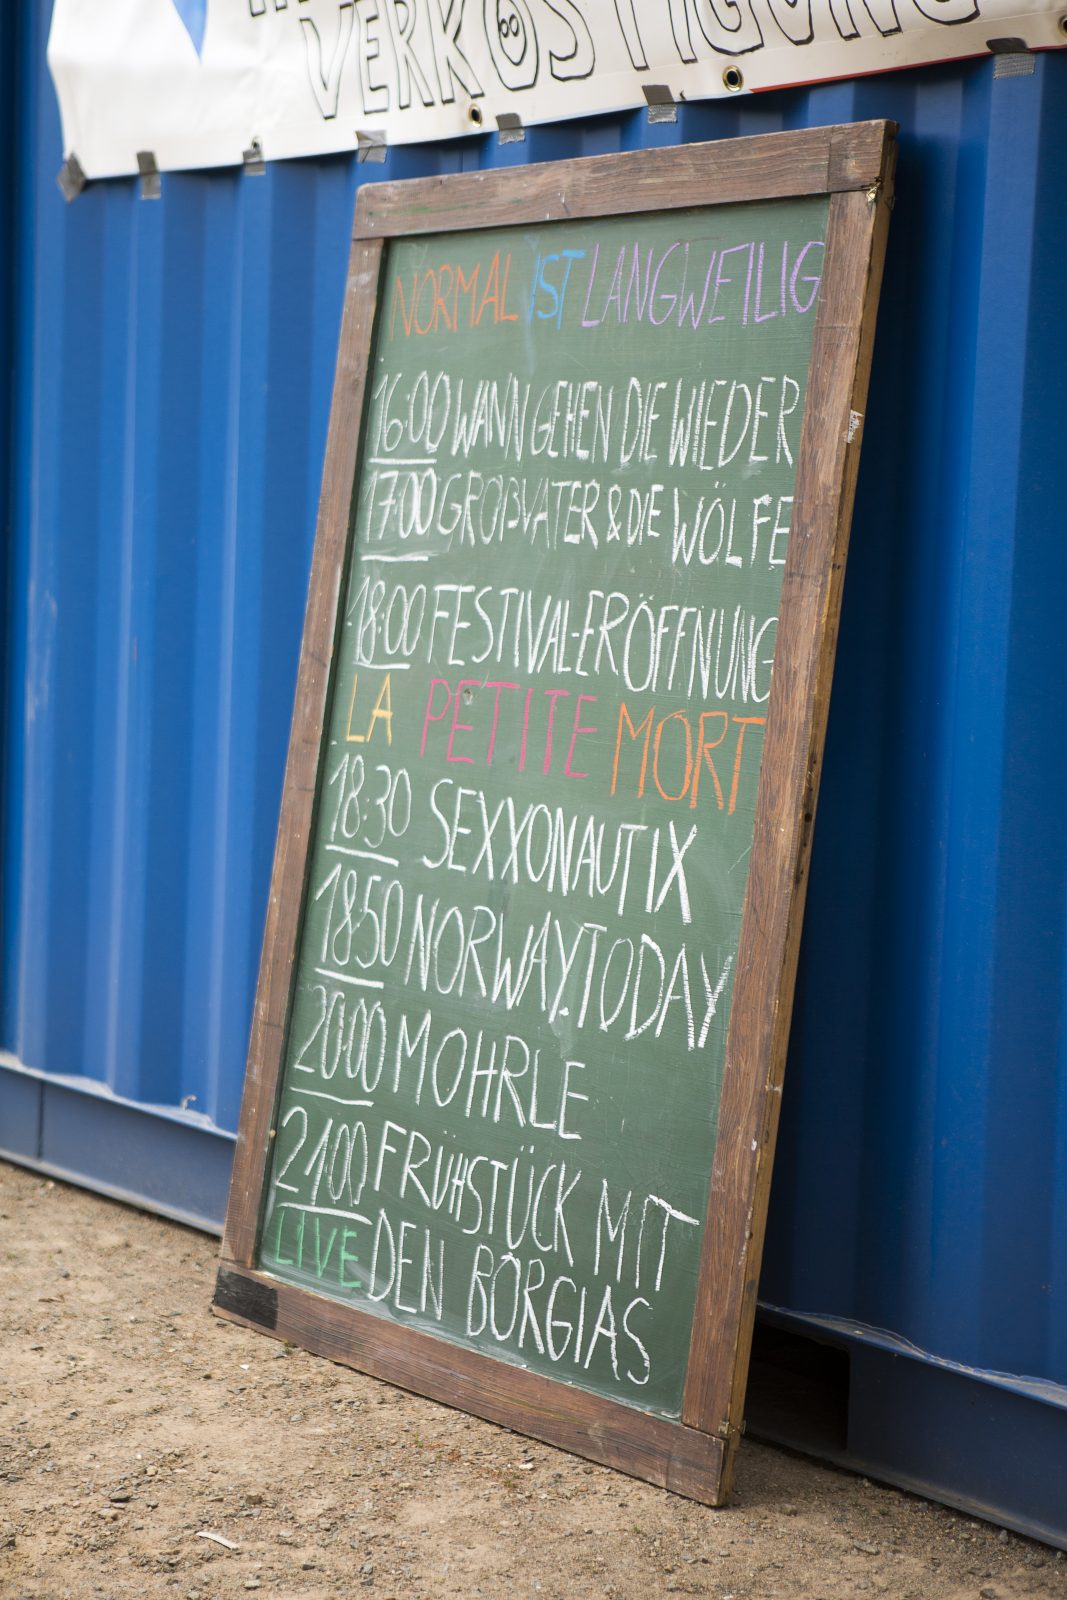 VERKÖSTIGUNG
NORMAL IST LANGWEILIG
16:00 WANN GEHEN DIE WIEDER
17:00 GROßVATER & DIE WÖLFE
18:00 FESTIVAL-ERÖFFNUNG
LA PETITE MORT
18:30 SEXXONAUTIX
18:50 NORWAY.TODAY
20:00 MOHRLE
21:00 FRÜHSTÜCK MIT
LIVE DEN BORGIAS